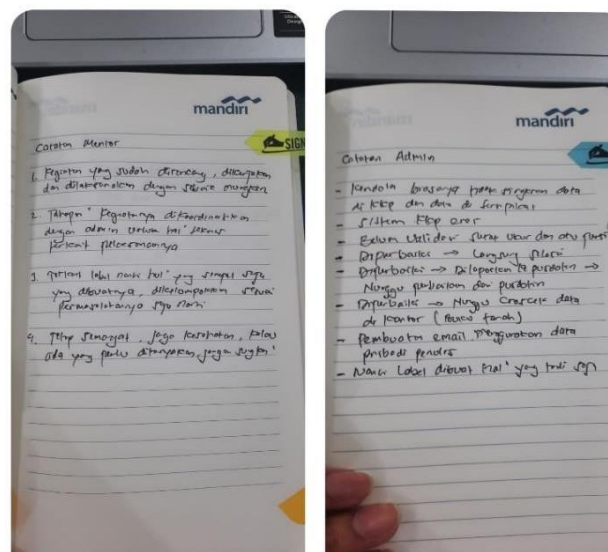 mandiri
Catatan Mentor
SIGN
1. Kegiatan yang sudah dirancang, dikerjakan
dan dilaksanakan dengan sebaik mungkin
2. Tahapan" kegiatannya dikoordinasikan
dengan admin untuk hal" teknis
terkait pelaksanaannya
3. label nanti hal" yang simpel saja
yang dibuatnya, dikelompokkan sesuai
permasalahannya saja nanti
4. Tetap semangat, jaga kesehatan, kalau
ada yang perlu ditanyakan jangan sungkan"
mandiri
Catatan Admin
- Kendala biasanya data
di kkp dan data di
- Sistem kkp eror
- Belum Validar surat ukur dan atau persil
- Diperbaiki → Langsung
- Diperbaiki → Dilaporkan ke pusdatin →
Nunggu perbaikan dari pusdatin
- Diperbaiki → Nunggu data
di kantor (buku tanah)
- Pembuatan email menggunakan data
pribadi
- Nanti Label dibuat hal" yang tadi